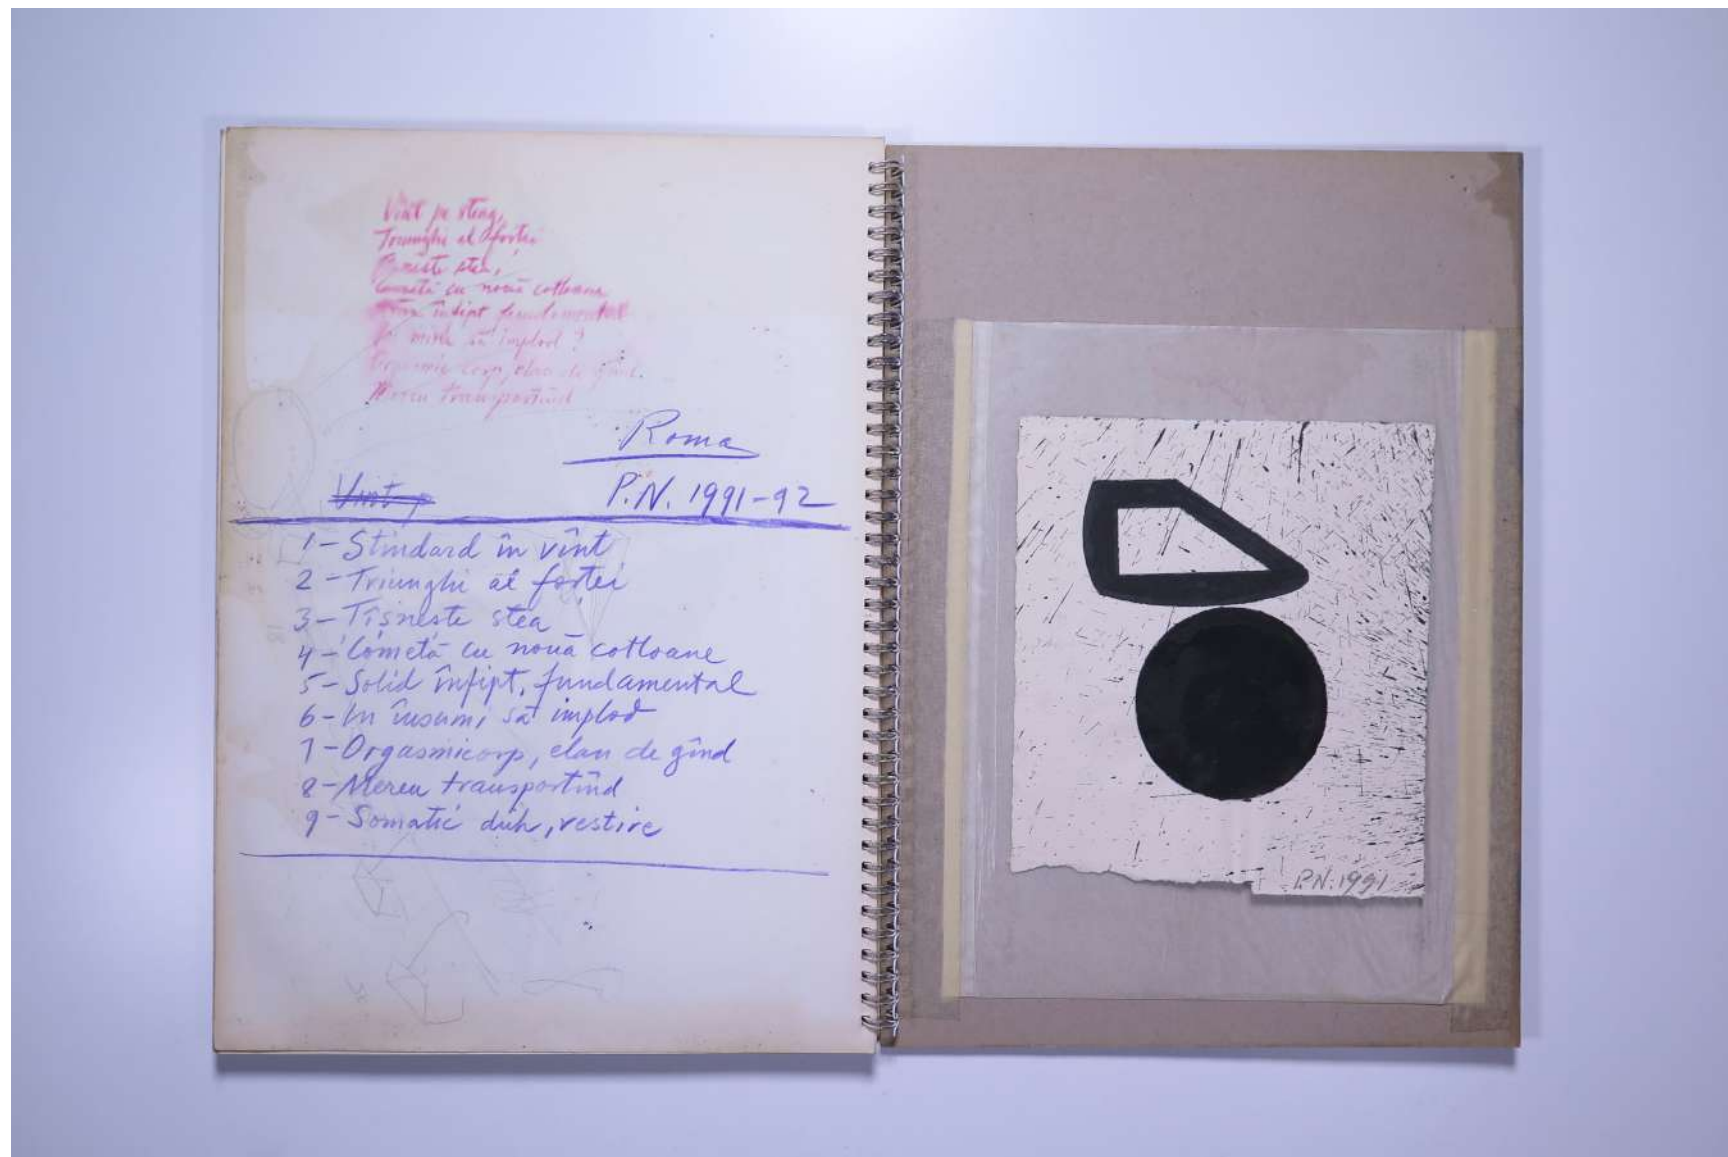 Vînt pe steag,
Triunghi al forței
stea,
Cometă cu nouă cotloane
înfipt fundamental
să implod?
corp, elan de gînd.
Mereu transportînd
Roma
Vînt p
P.N. 1991-92
1-Stindard în vînt
2-Triunghi al forței
3-Tîșneste stea
4-Cometă cu nouă cotloane
5-Solid înfipt, fundamental
6-In însumi, să implod
7-Orgasmicorp, elan de gînd
8-Mereu transportînd
9-Somatic duh, vestire
P.N. 1991